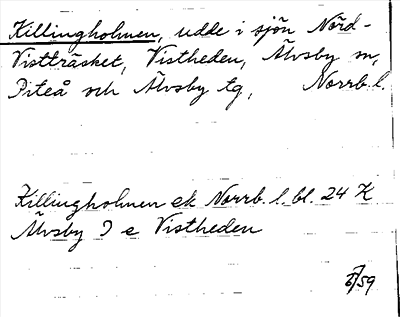 Killingholmen, udde i sjön Nörd-
Vistträsket, Vistheden, Älvsby sn,
Piteå och Älvsby tg, Norrb. l.
Killingholmen ek Norrb. l. bl. 24 K
Älvsby I e Vistheden